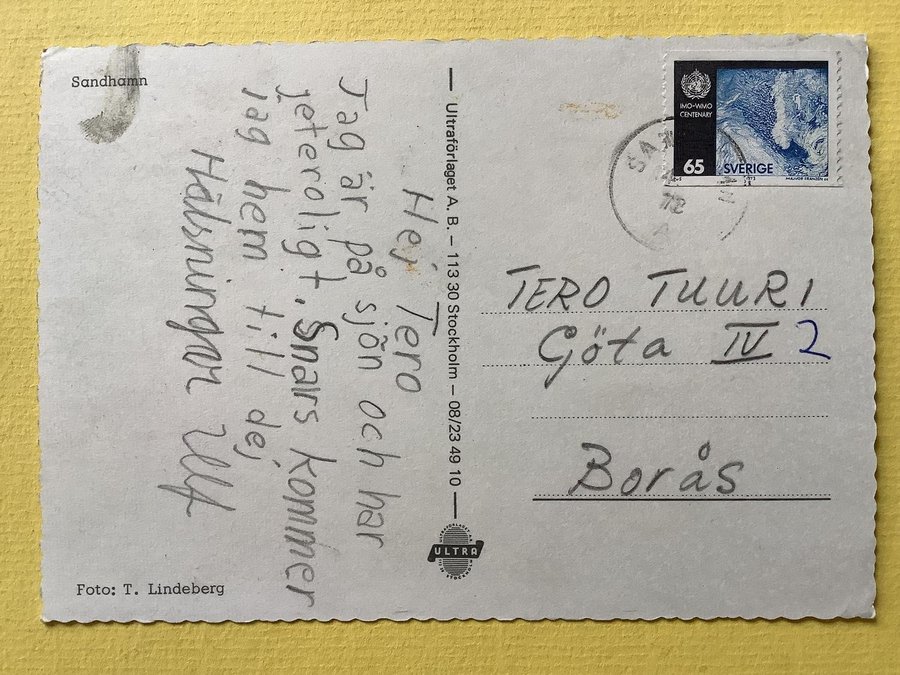 Sandhamn
Hej Tero
Jag är på sjön och har
jeteroligt. Snars kommer
jag hem till dej
Hälsningar Ulf
Foto: T. Lindeberg
Ultraförlaget A. B. – 113 30 Stockholm – 08/23 49 10
ULTRA
IMO-WMO
CENTENARY
65
SVERIGE
TERO TUURI
Göta IV 2
Borås